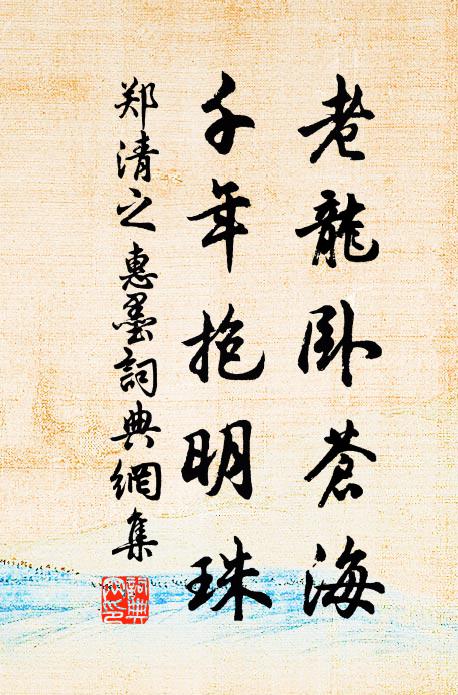 老龍卧蒼海
千年抱明珠
郑清之惠墨詞典網集